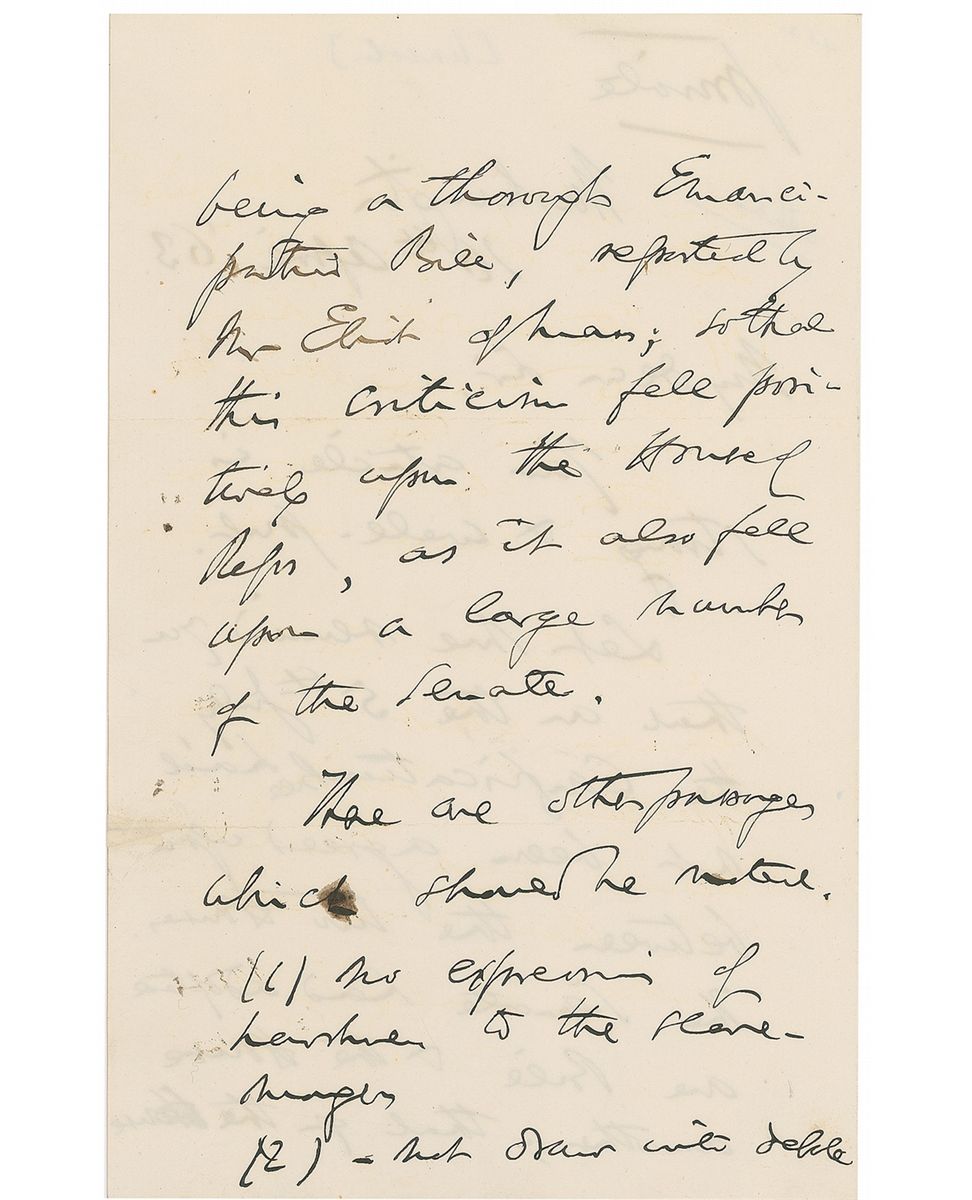 being a thorough Emanci-
pation Bill, reported by
Mr Eliot of Mass; so that
this criticism fell posi-
tively upon the House of
Reps, as it also fell
upon a large number
of the Senate.
There are other passages
which should be noted.
(1) no expression of
harshness to the slave-
mongers
(2) - not draw into debate